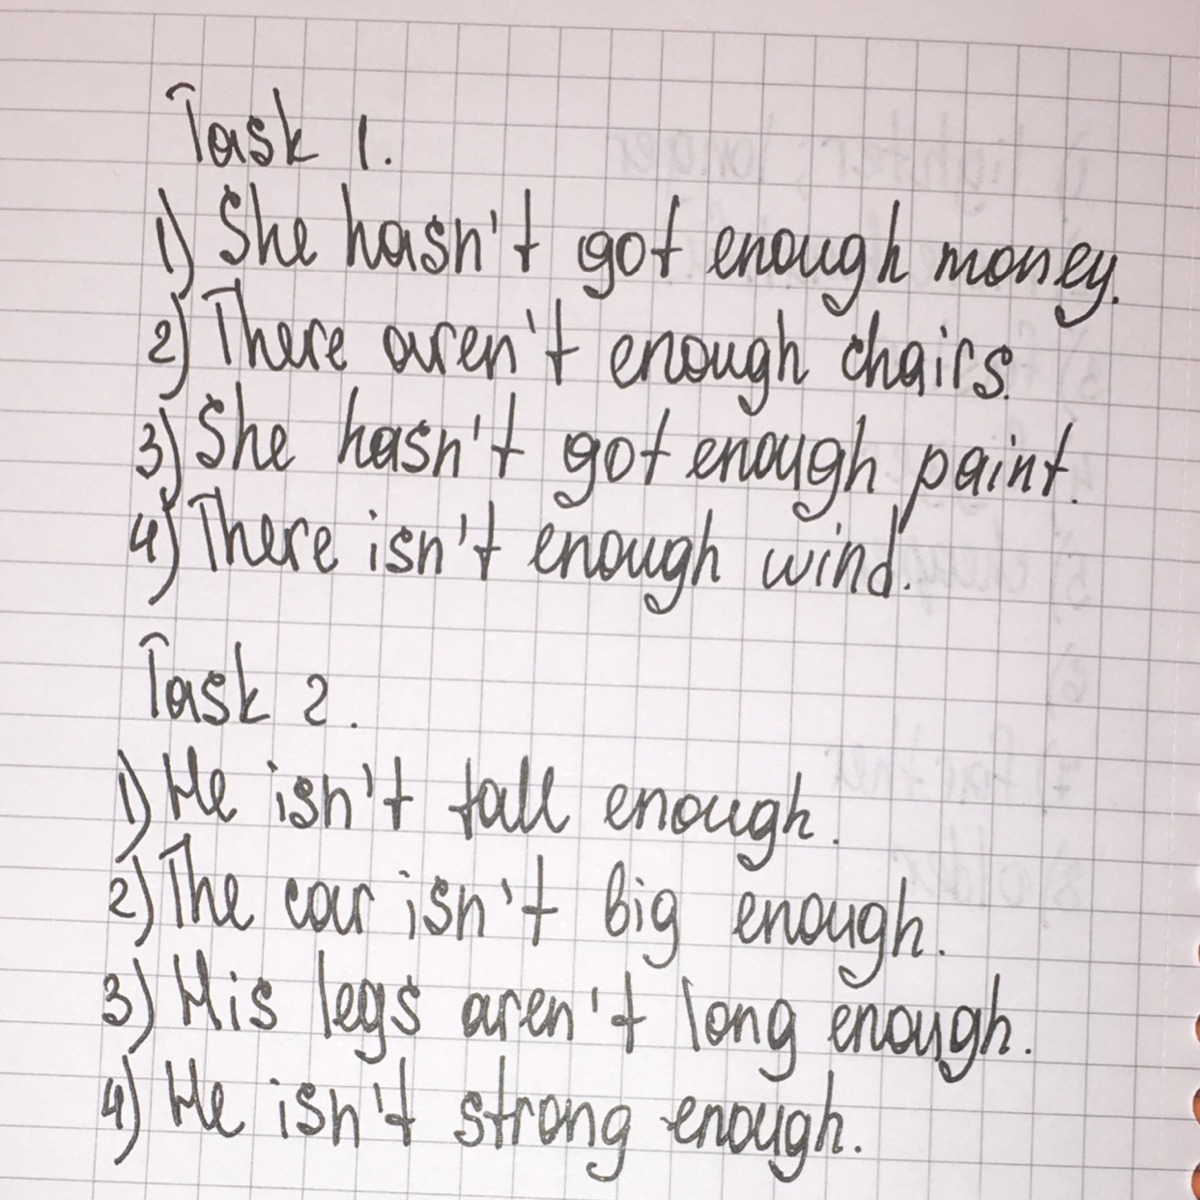 Task 1.
1) She hasn't got enough money.
2) There aren't enough chairs.
3) She hasn't got enough paint.
4) There isn't enough wind.
Task 2.
1) He isn't tall enough.
2) The car isn't big enough.
3) His legs aren't long enough.
4) He isn't strong enough.